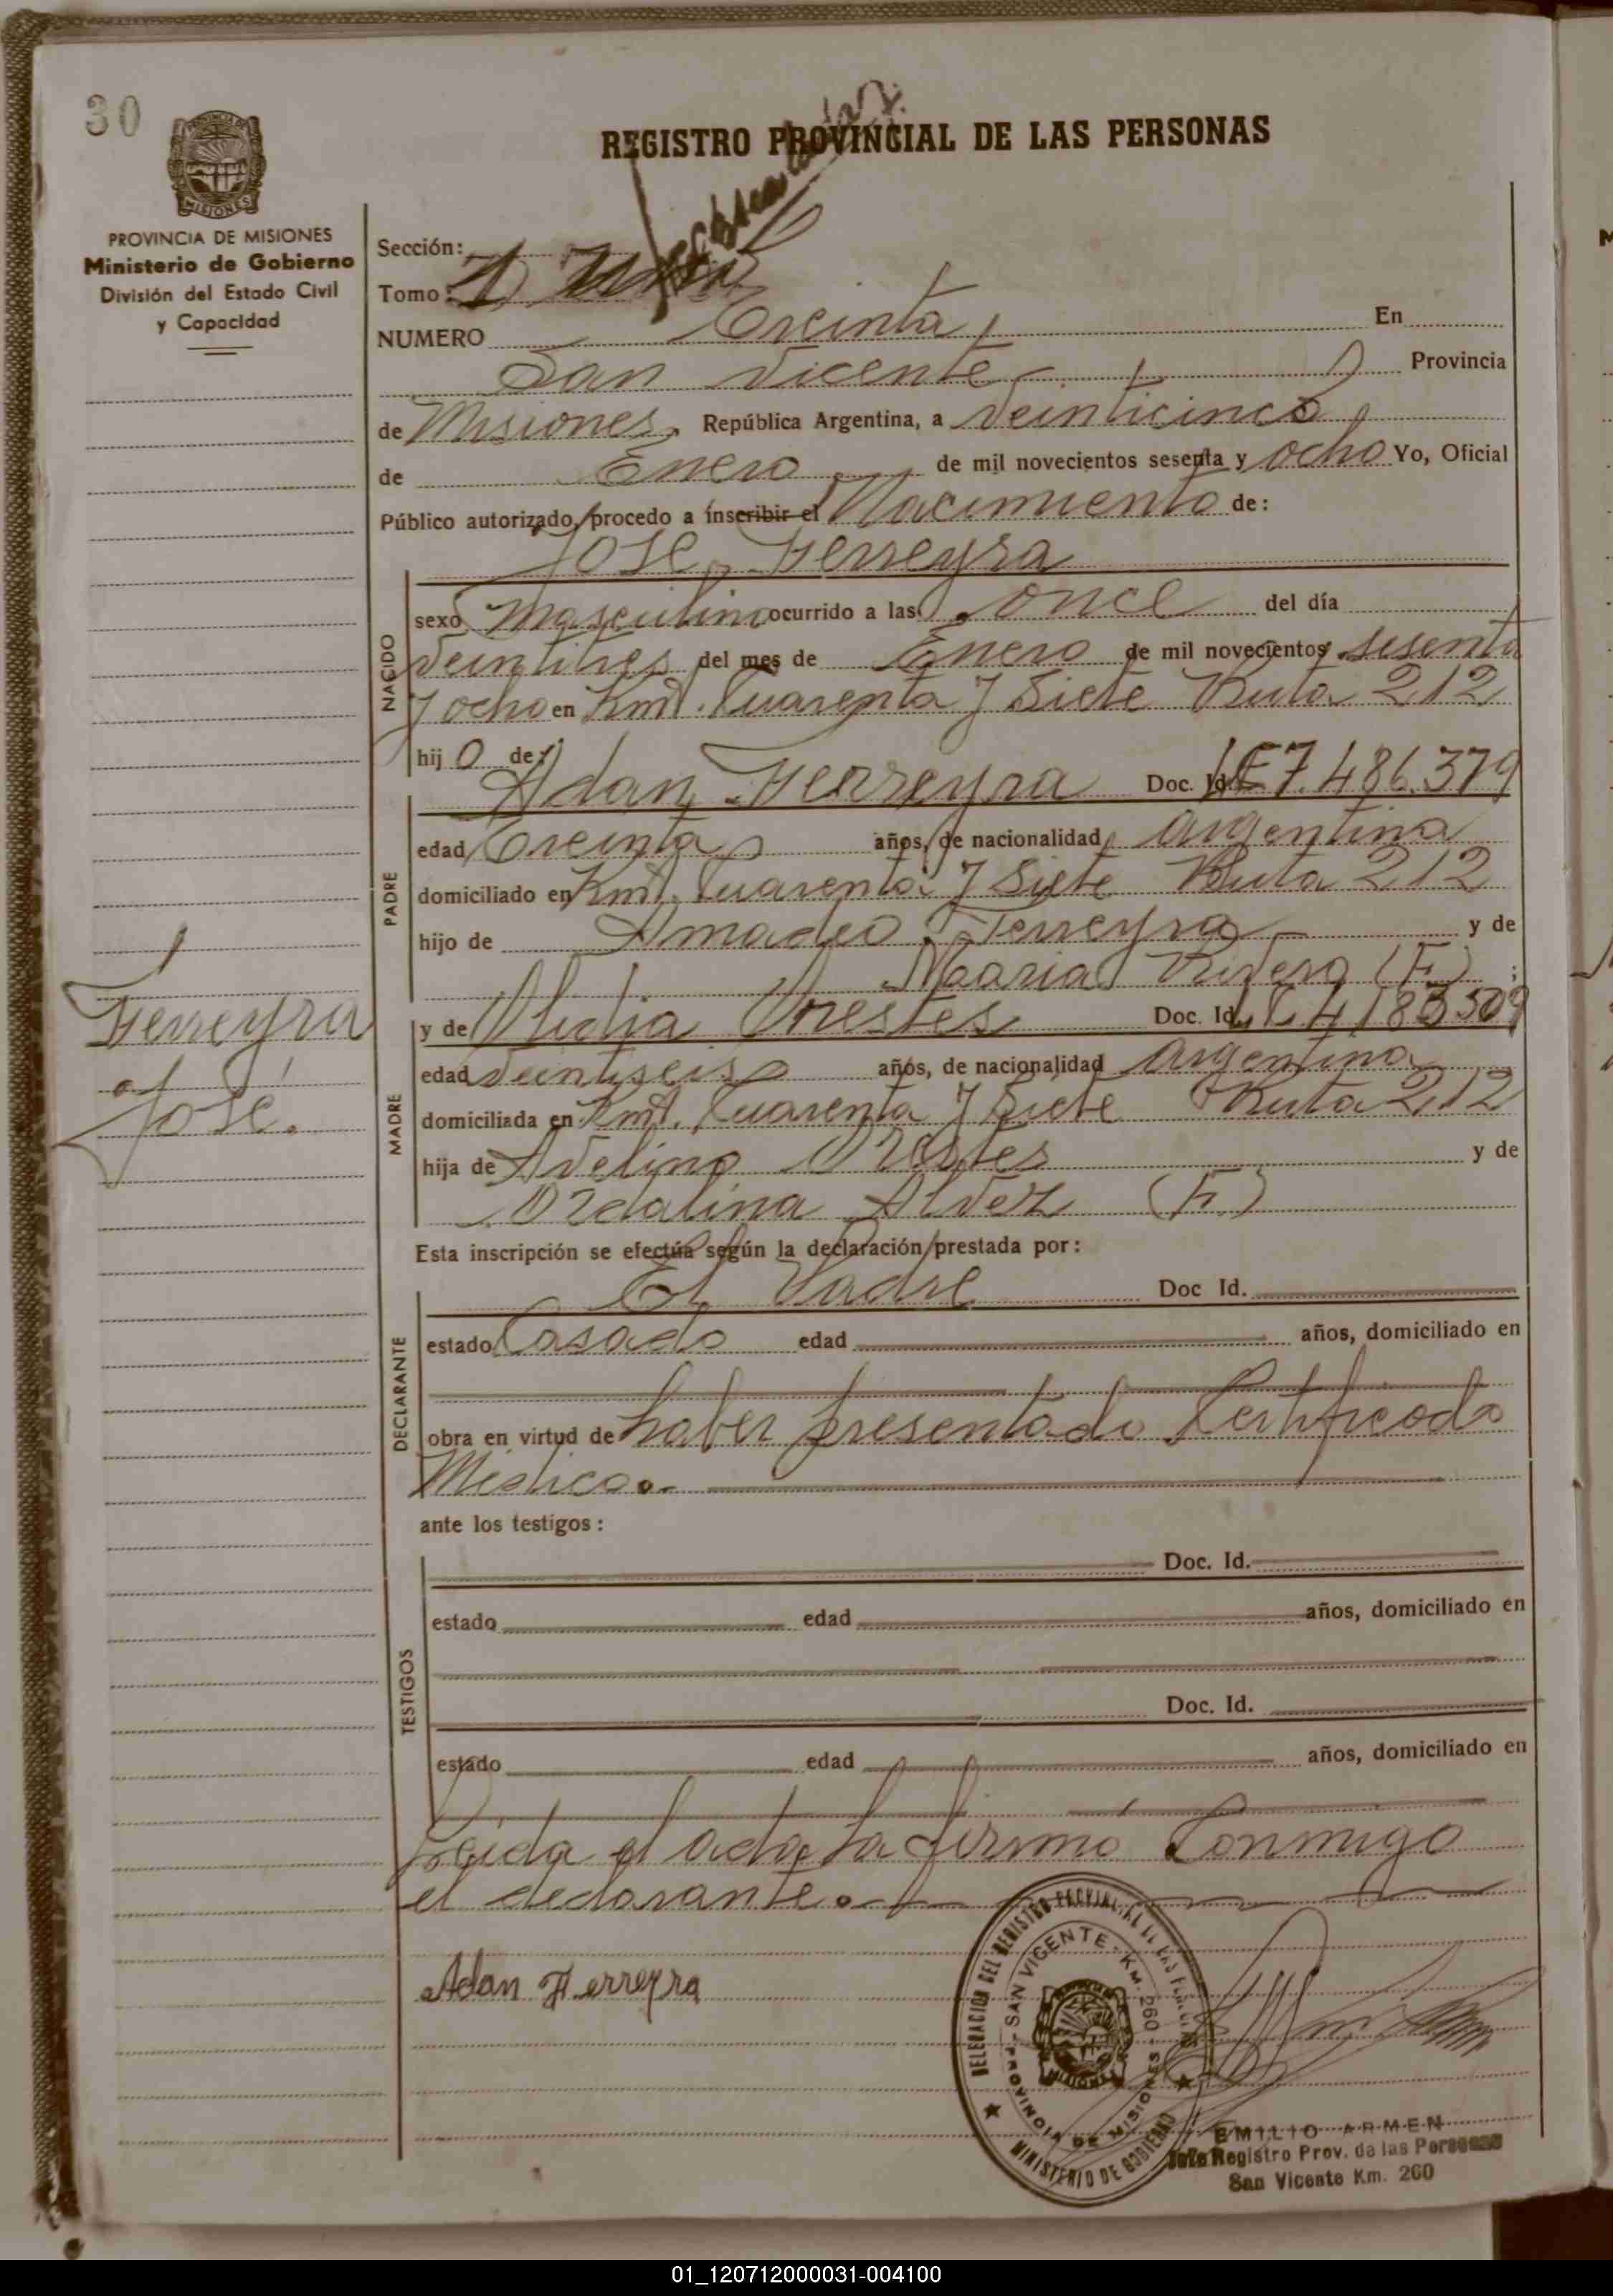 30
REGISTRO PROVINCIAL DE LAS PERSONAS
PROVINCIA DE MISIONES
Ministerio de Gobierno
División del Estado Civil
y Capacidad
Sección:
Tomo: 1
NUMERO Treinta En
San Vicente Provincia
de Misiones, República Argentina, a Veinticinco
de Enero de mil novecientos sesenta y ocho Yo, Oficial
Público autorizado, procedo a inscribir el Nacimiento de:
Jose Ferreyra
NACIDO
sexo Masculino ocurrido a las once del día
Veintitres del mes de Enero de mil novecientos sesenta
y ocho en Kmt. Cuarenta y Siete Ruta 212
hij o de:
Adan Ferreyra Doc. Id. LE 7.486.379
PADRE
edad Treinta años, de nacionalidad Argentina
domiciliado en Kmt. Cuarenta y Siete Ruta 212
hijo de Amadeo Ferreyra y de
Maaria Rivera (F) ;
y de Orestes Doc. Id. L.C. 4183509
MADRE
edad Veintiseis años, de nacionalidad Argentina
domiciliada en Kmt. Cuarenta y Siete Ruta 212
hija de Avelino Orestes y de
Ordalina Alvez (F)
Ferreyra
José.
Esta inscripción se efectúa según la declaración prestada por:
El Padre Doc Id.
DECLARANTE
estado Casado edad años, domiciliado en
obra en virtud de haber presentado Certificado
Medico.
ante los testigos:
Doc. Id.
TESTIGOS
estado edad años, domiciliado en
Doc. Id.
estado edad años, domiciliado en
Leida el acta la firmó Conmigo
el declarante.
Adan Ferreyra
DELEGACION DEL REGISTRO PROVINCIAL DE LAS PERSONAS
SAN VICENTE - KM. 260 -
PROVINCIA DE MISIONES
MISIONES
MINISTERIO DE GOBIERNO
EMILIO ARMEN
Jefe Registro Prov. de las Personas
San Vicente Km. 260
01_120712000031-004100